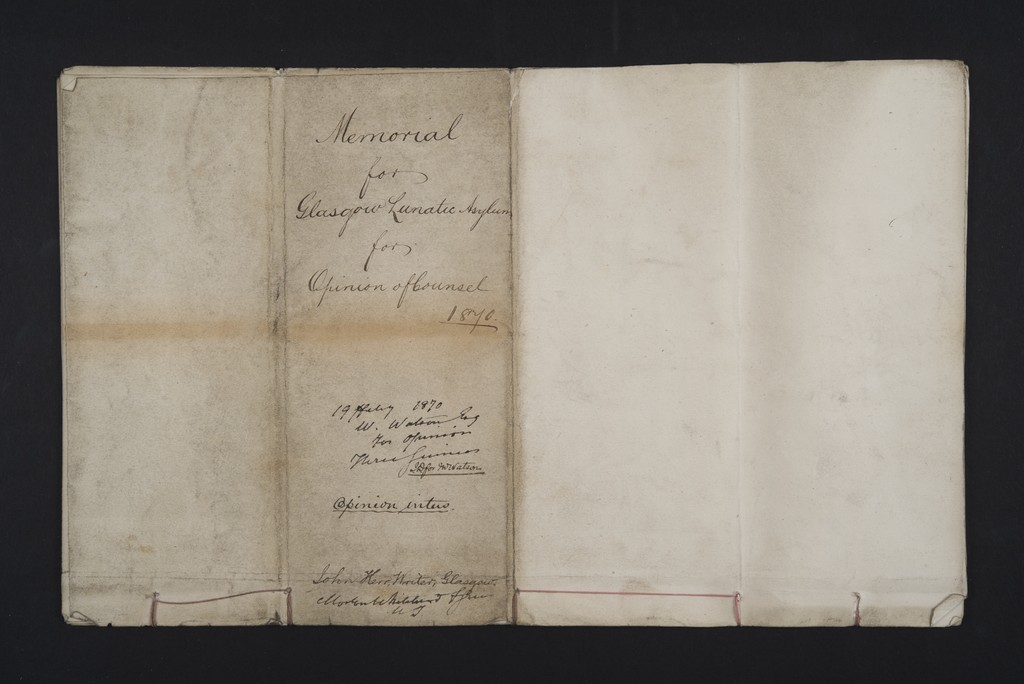 Memorial
for
Glasgow Lunatic Asylum
for
Opinion of Counsel
1870.
19 Feby 1870
W. Watson Esq
For Opinion
Three Guineas
for W Watson
Opinion intus.
John Kerr, Writer, Glasgow.